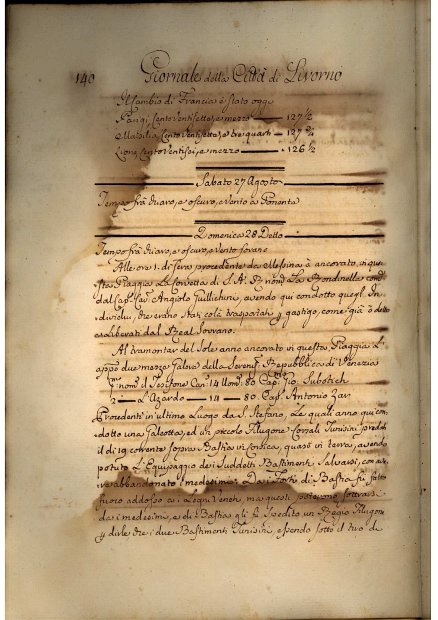 140 Giornale della Città di Livorno
Il Cambio di Francia è stato oggi
Parigi, Cento Ventisette, e mezzo — 127 1/2
Marsilia, Cento Ventisette, e tre quarti — 127 3/4
Lione, Cento Ventisei, e mezzo — 126 1/2
Sabato 27 Agosto
Tempo frà chiaro, e oscuro, e Vento a Ponente
Domenica 28 Detto
Tempo frà chiaro, e oscuro, e Vento
Alle ore 1. di sera procedente da Messina è ancorato in que
sta Piaggia La Corvetta di S. A. R. nom. La Rondinella cond.
dal Cap. Cav. Angiolo, avendo qui condotto quegl' In
dividui, che erano stati colà trasportati p gastigo, come già è detto
e Liberati dal Real Sovrano.
Al tramontar del Sole anno ancorato in questa Piaggia L'
appo due mezze Galere della Seren. Repubblica di Venezia
nom. il Can. 14 Uom. 80 Cap. Gio. Subotich
2 — L'Azardo — 14 — 80 Cap. Antonio Zar
Procedenti in ultimo Luogo da S. Stefano, Le quali anno qui con
dotto una Galeotta, ed un piccolo Filugone Corsali Tunisini predati
il dì 19 corrente sopra Bastia in Corsica, quasi in terra, avendo
potuto L'Equipaggio dei Suddetti Bastimenti Salvarsi, con
abbandonato i medesimi: Dai Forti di Bastia fù fatto
fuoco addosso ai Legni Veneti, ma questi poterono sottrarsi
dai medesimi, e di Bastia gli fù spedito un Regio Filugone
p dirle che i due Bastimenti Tunisini, essendo sotto il tiro di